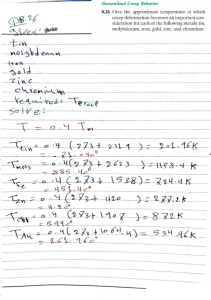 Generalized Creep Behavior
8.26 Give the approximate temperature at which
creep deformation becomes an important con-
sideration for each of the following metals: tin,
molybdenum, iron, gold, zinc, and chromium.
D8.26
given:
tin
molybdenum
iron
gold
zinc
chromium
required: Tcreep
solve:
T = 0.4 Tm
Ttin = 0.4 (273 + 231.9) = 201.96K
= -71.04°
= 0.4 (273 + 2623) = 1158.4 K
= 885.4°
TFe = 0.4 (273 + 1538) = 724.4K
= 451.4°
TZn = 0.4 (273 + 420) = 277.2K
= 4.2°
= 0.4 (273 + 1907) = 872K
= 599°
TAu = 0.4 (273 + 1064.4) = 534.96K
= 261.96°